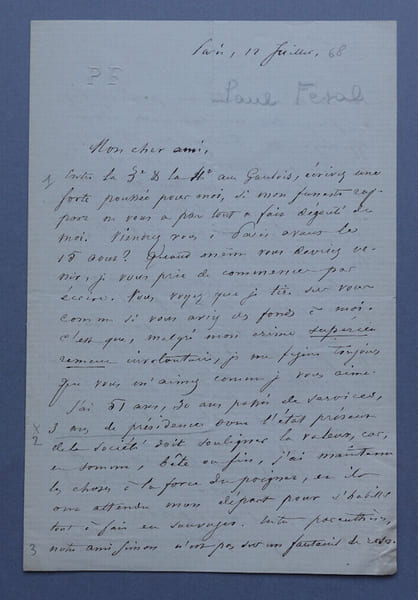 Paris, 12 Juillet, 68
P F
Paul Feval
Mon cher ami,
1 Entre la 3e & la 4e au Gaulois, écrivez une
forte poussée pour moi, si mon funeste rap-
port ne vous a pas tout à fait dégouté de
moi. Viendrez vous à Paris avant le
15 aout? Quand même vous devriez ve-
nir, je vous prie de commencer par
écrire. Vous voyez que je tire sur vous
comme si vous aviez des fonds à moi.
c'est que, malgré mon crime
involontaire, je me figure toujours
que vous m'aimez comme je vous aime.
J'ai 51 ans, 30 ans passés de services,
x 2 3 ans de présidences dont l'état présent
de la société doit souligner la valeur, car,
en somme, bête ou fin, j'ai maintenu
les choses à la force du poignet, et ils
ont attendu mon départ pour s'habiller
tout à fait en sauvages. Entre parenthèses,
3 notre ami Simon n'est pas sur un fauteuil de roses.